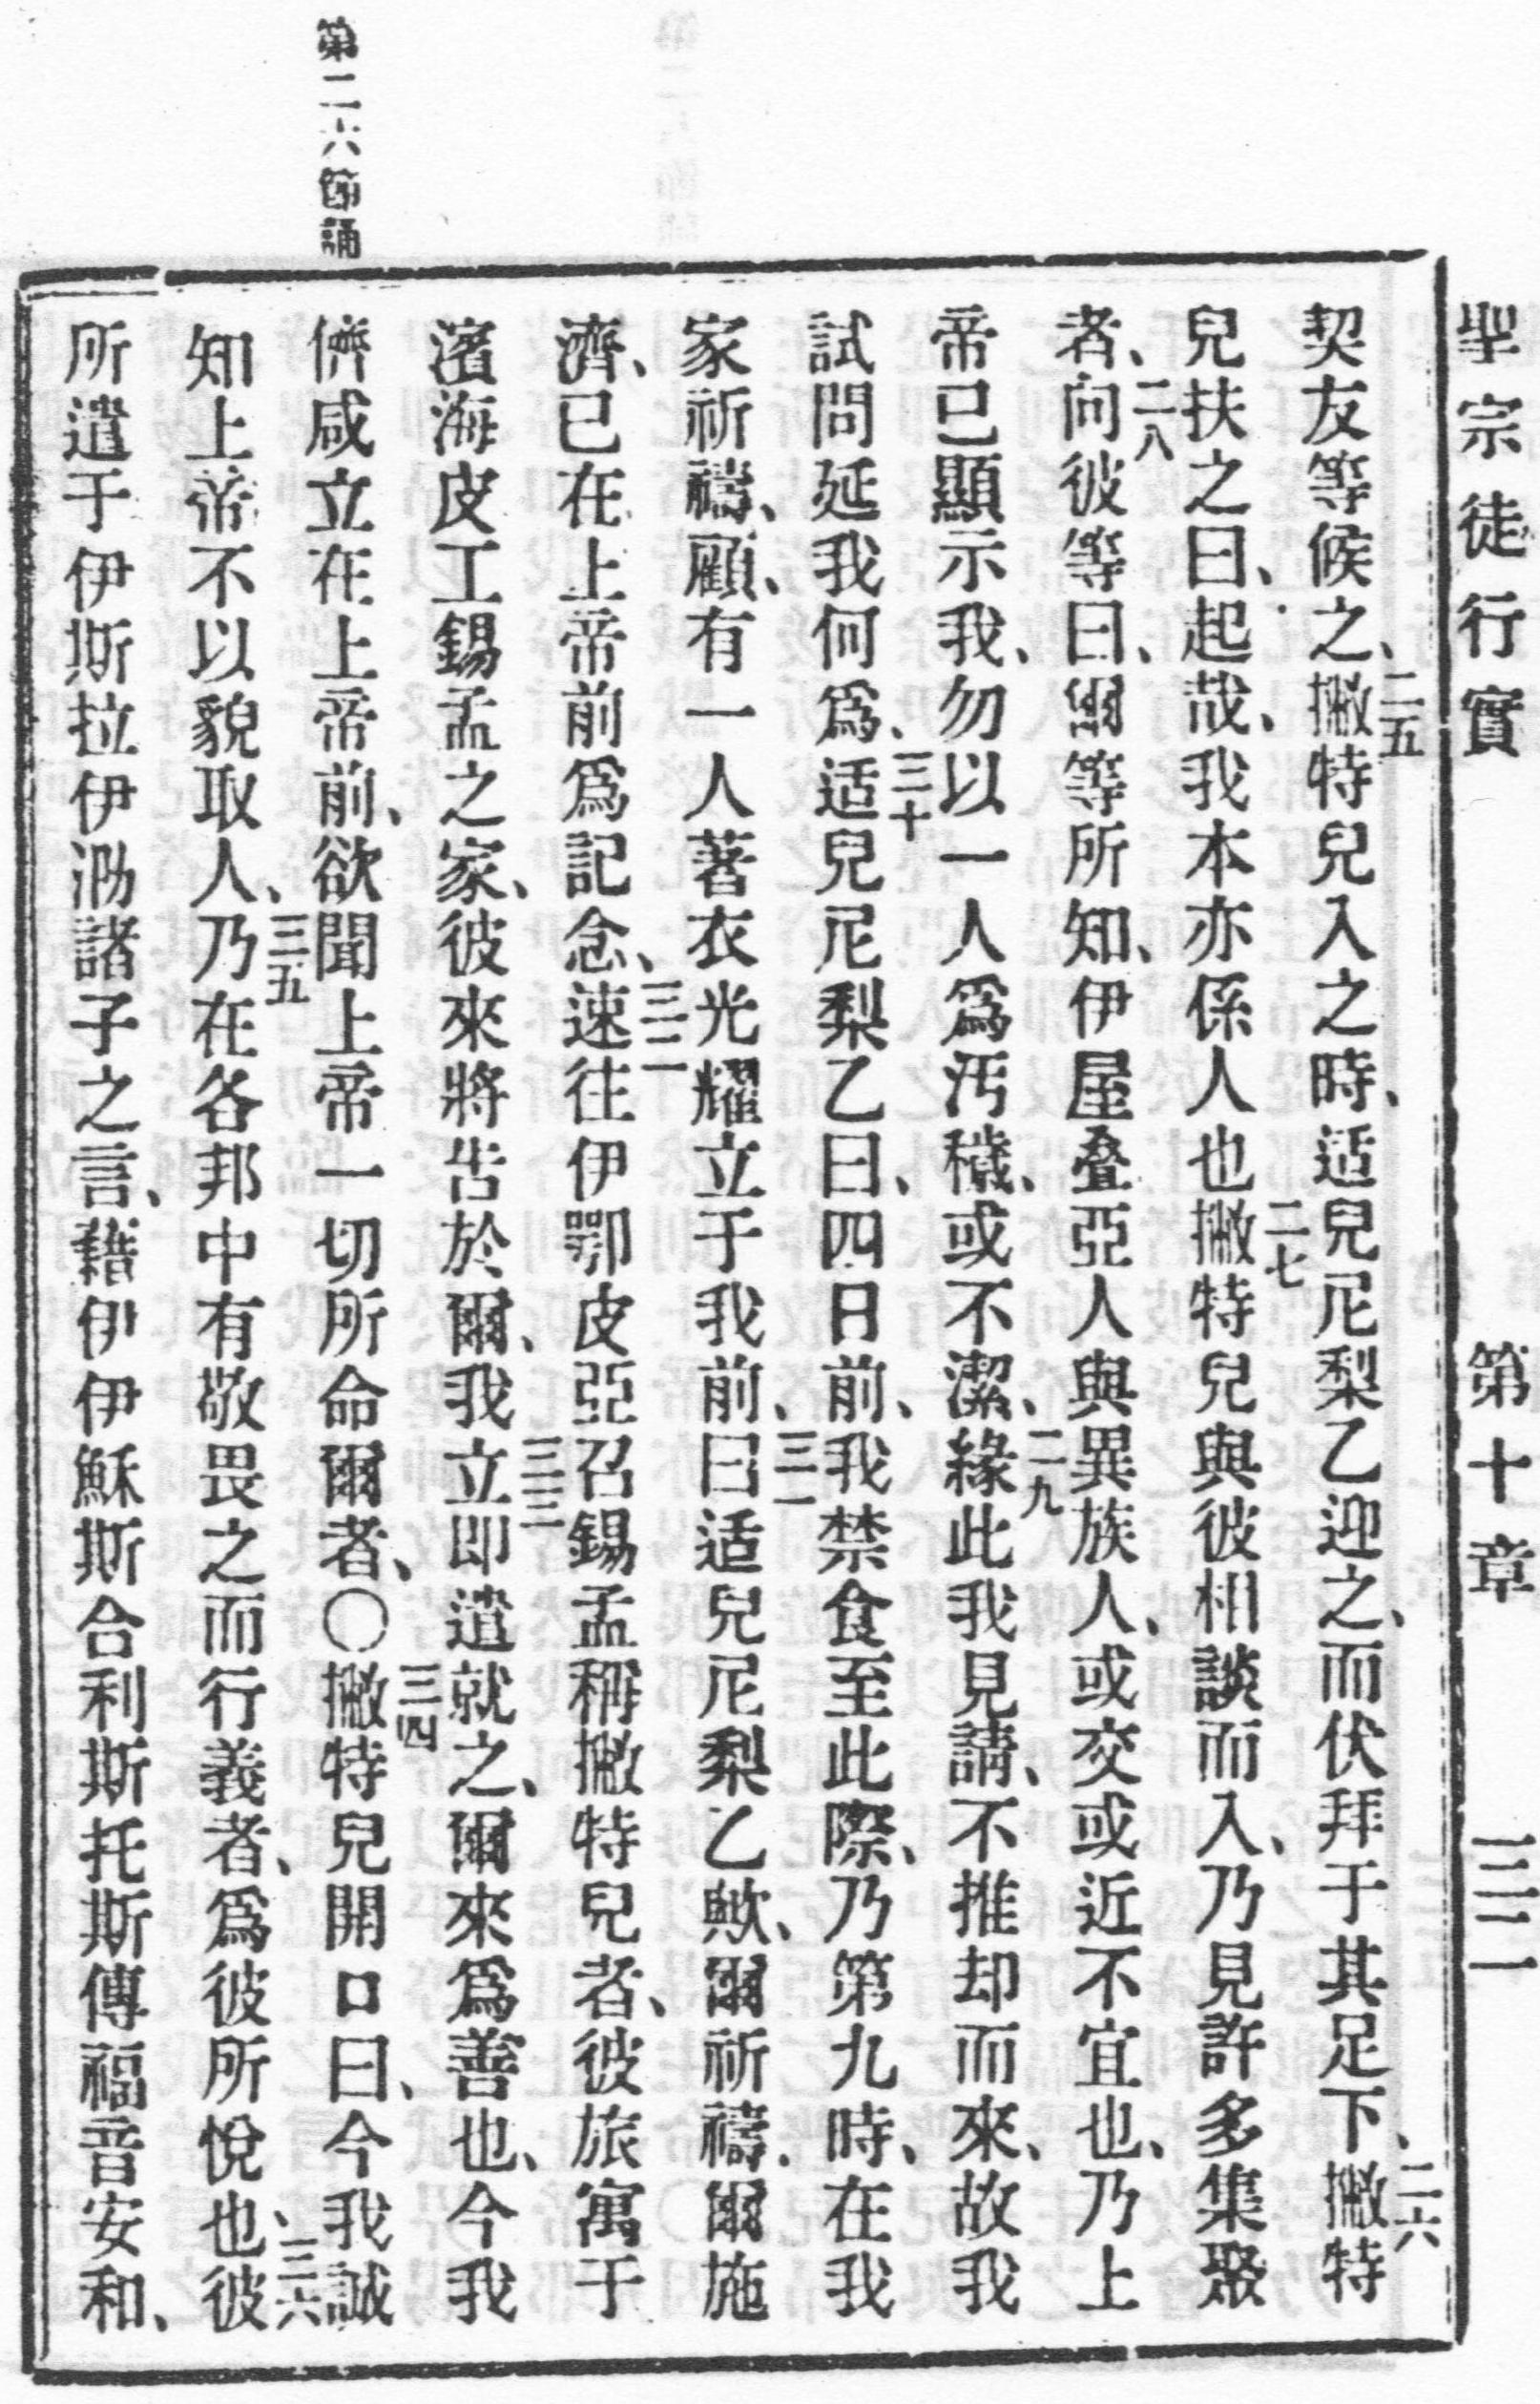 聖宗徒行實　第十章　三二一
契友等候之、二五撇特兒入之時、适兒尼梨乙迎之、而伏拜于其足下、二六撇特
兒扶之曰、起哉、我本亦係人也二七撇特兒與彼相談而入、乃見許多集聚
者、二八向彼等曰、爾等所知、伊屋叠亞人與異族人、或交或近不宜也、乃上
帝已顯示我、勿以一人爲汚穢、或不潔、二九緣此我見請、不推却而來、故我
試問延我何爲、三十适兒尼梨乙曰、四日前、我禁食至此際、乃第九時、在我
家祈禱、顧、有一人著衣光耀立于我前、三一曰适兒尼梨乙歟、爾祈禱、爾施
濟、已在上帝前爲記念、三二速往伊鄂皮亞召錫孟稱撇特兒者、彼旅寓于
濱海皮工錫孟之家、彼來將告於爾、我三三立即遣就之、爾來爲善也、今我
儕咸立在上帝前、欲聞上帝一切所命爾者、〇三四撇特兒開口曰、今我誠
知上帝不以貌取人、三五乃在各邦中有敬畏之而行義者、爲彼所悅也、三六彼
所遣于伊斯拉伊泐諸子之言、藉伊伊穌斯合利斯托斯傳福音安和、
第二六節誦